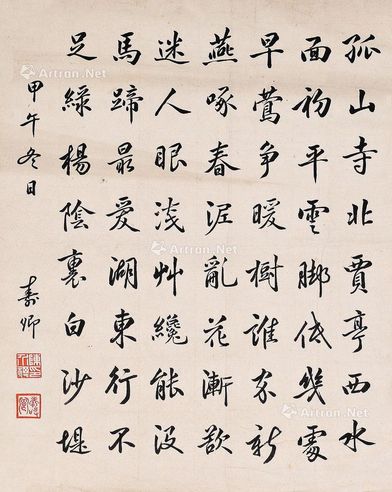 孤山寺北賈亭西水
面初平雲脚低幾處
早鶯争暖樹誰家新
燕啄春泥亂花漸欲
迷人眼淺艸纔能沒
馬蹄最愛湖東行不
足綠楊陰裏白沙堤
甲午冬日 壽卿
Artron.Net
Artron.Net
Artron.Net
Artron.Net